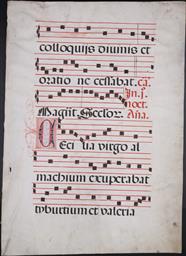 colloquijs diuinis et
oratio ne cessabat. ca.
In. s.
noct.
Magñt. Seclor. Aña.
Ceci lia virgo al
machium exuperabat
tyburtium et valeria